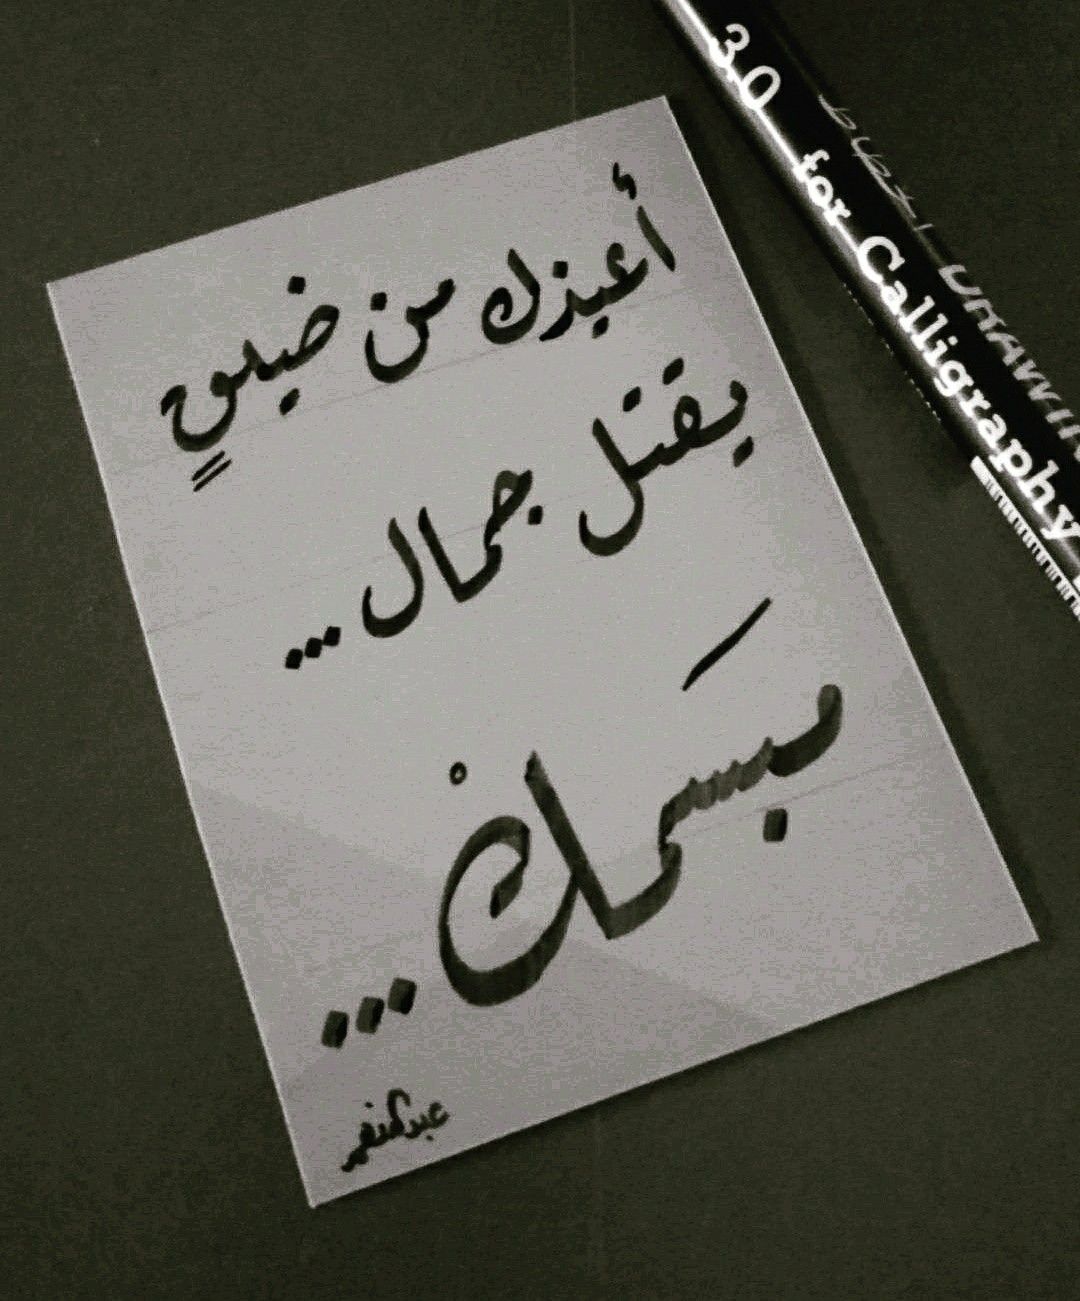 أعيذك من ضيقٍ
يقتل جمال...
مبسمكْ...
عبدالمنعم
3.0 for Calligraphy